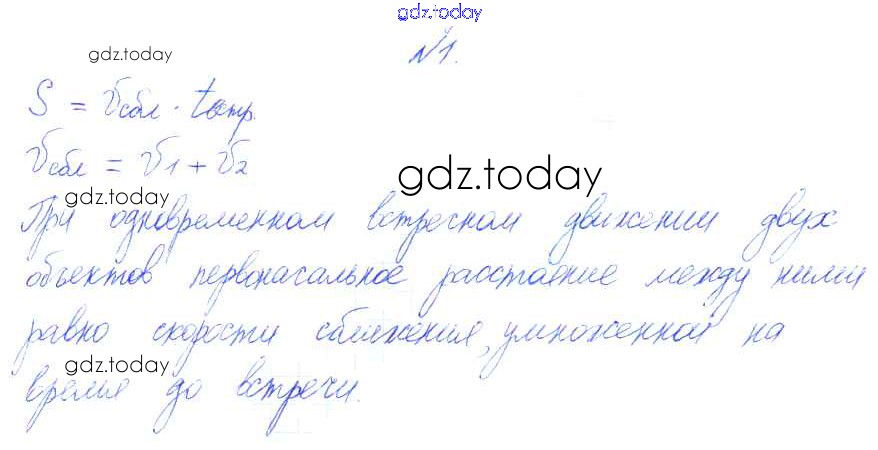 gdz.today
gdz.today
№1.
S = Vсбл · tвстр.
Vсбл = V1 + V2
gdz.today
gdz.today
При одновременном встречном движении двух
объектов первоначальное расстояние между ними
равно скорости сближения, умноженной на
gdz.today
время до встречи.